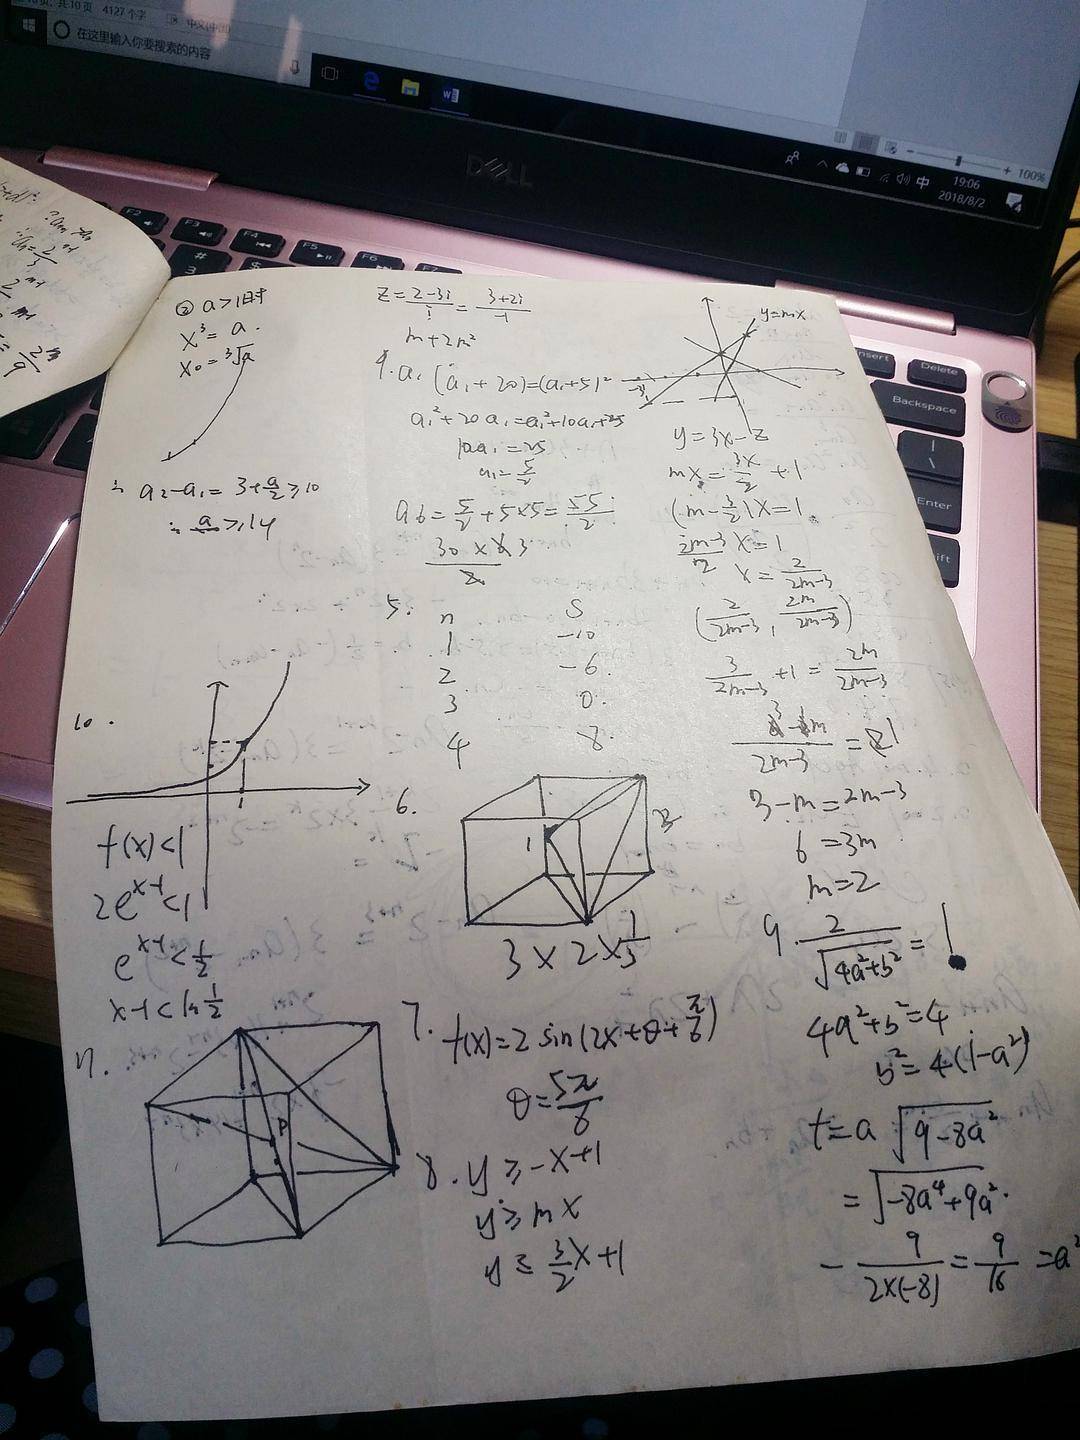 共10页 4127个字 中文(中国)
在这里输入你要搜索的内容
100%
中 19:06
2018/8/2
DELL
F3
F4
F5
F6
F7
#
3
$
Insert
Delete
Backspace
Enter
|
\
② a>1时
x³=a.
x₀=³√a
∴ a₂-a₁=3+a/2≥10
∴ a≥14
10.
1
f(x)<1
2e^(x-1)<1
e^(x-1)<1/2
x-1<ln 1/2
11.
P
z=(2-3i)/i=(3+2i)/-1
m+2m²
4. a₁(a₁+20)=(a₁+5)²
a₁²+20a₁=a₁²+10a₁+25
10a₁=25
a₁=5/2
a6=5/2+5×5=55/2
5. n S
1 -10
2 -6
3 0
4 8
6.
1
3×2×1/3
7. f(x)=2sin(2x+θ+π/6)
θ=5π/6
8. y≥-x+1
y≥mx
y≤3/2x+1
y=mx
y=3x-z
mx=3x/2+1
(m-3/2)x=1
(2m-3)/2 x=1
x=2/(2m-3)
(2/(2m-3), 2m/(2m-3))
3/(2m-3)+1=2m/(2m-3)
3-m=2m-3
6=3m
m=2
9. 2/√(4a²+b²)=1
4a²+b²=4
b²=4(1-a²)
t=a√(9-8a²)
=√(-8a⁴+9a²)
-9/(2×(-8))=9/16=a²